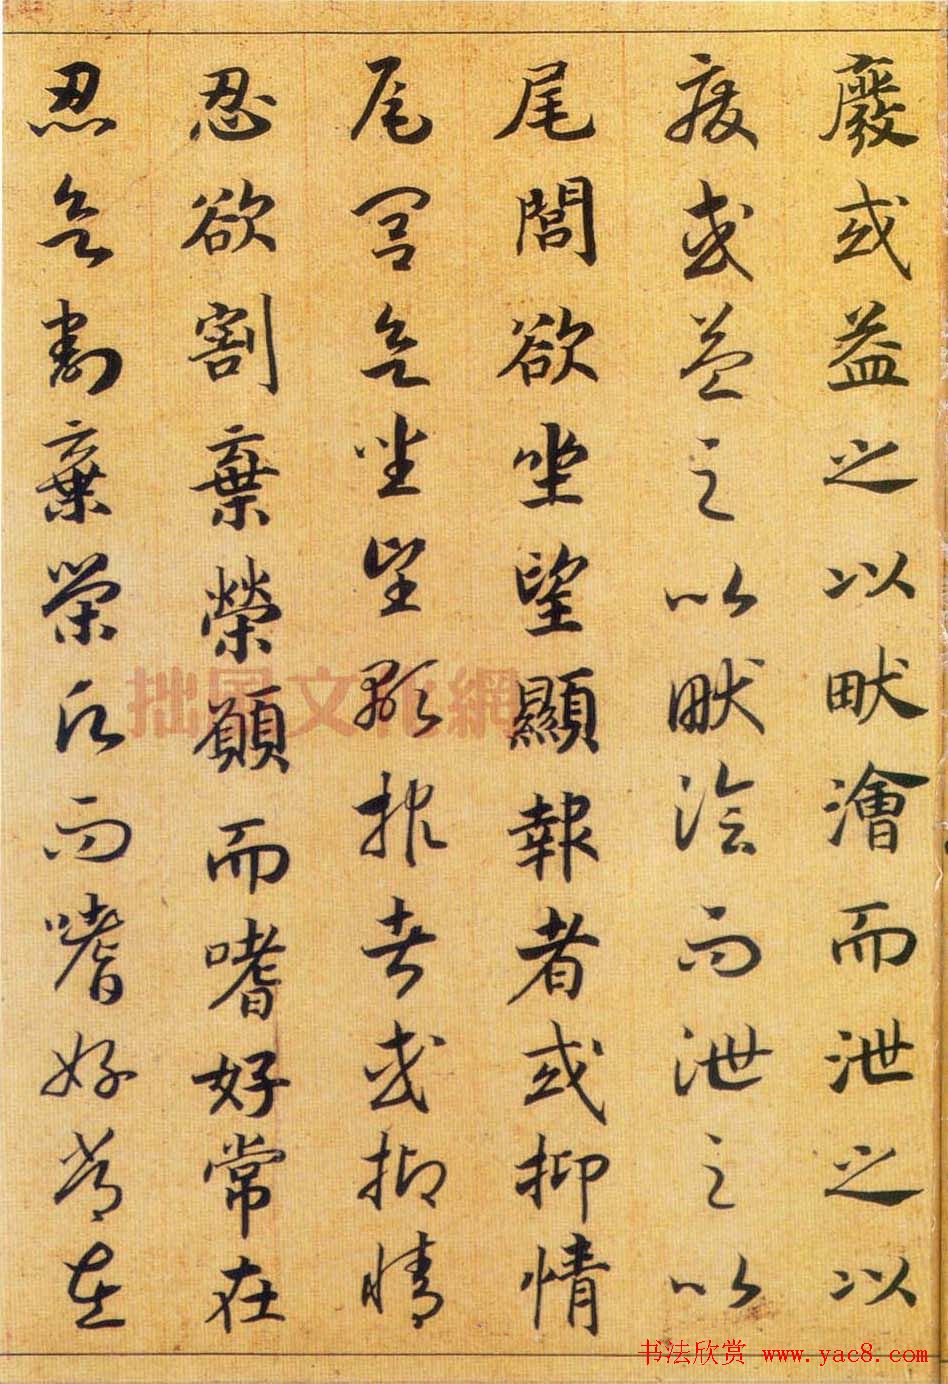 廢或益之以畎澮而泄之以
廢或益之以畎澮而泄之以
尾閭欲坐望顯報者或抑情
尾閭欲坐望顯報者或抑情
忍欲割棄榮願而嗜好常在
忍欲割棄榮願而嗜好常在
拙風文化網
书法欣赏 www.yac8.com